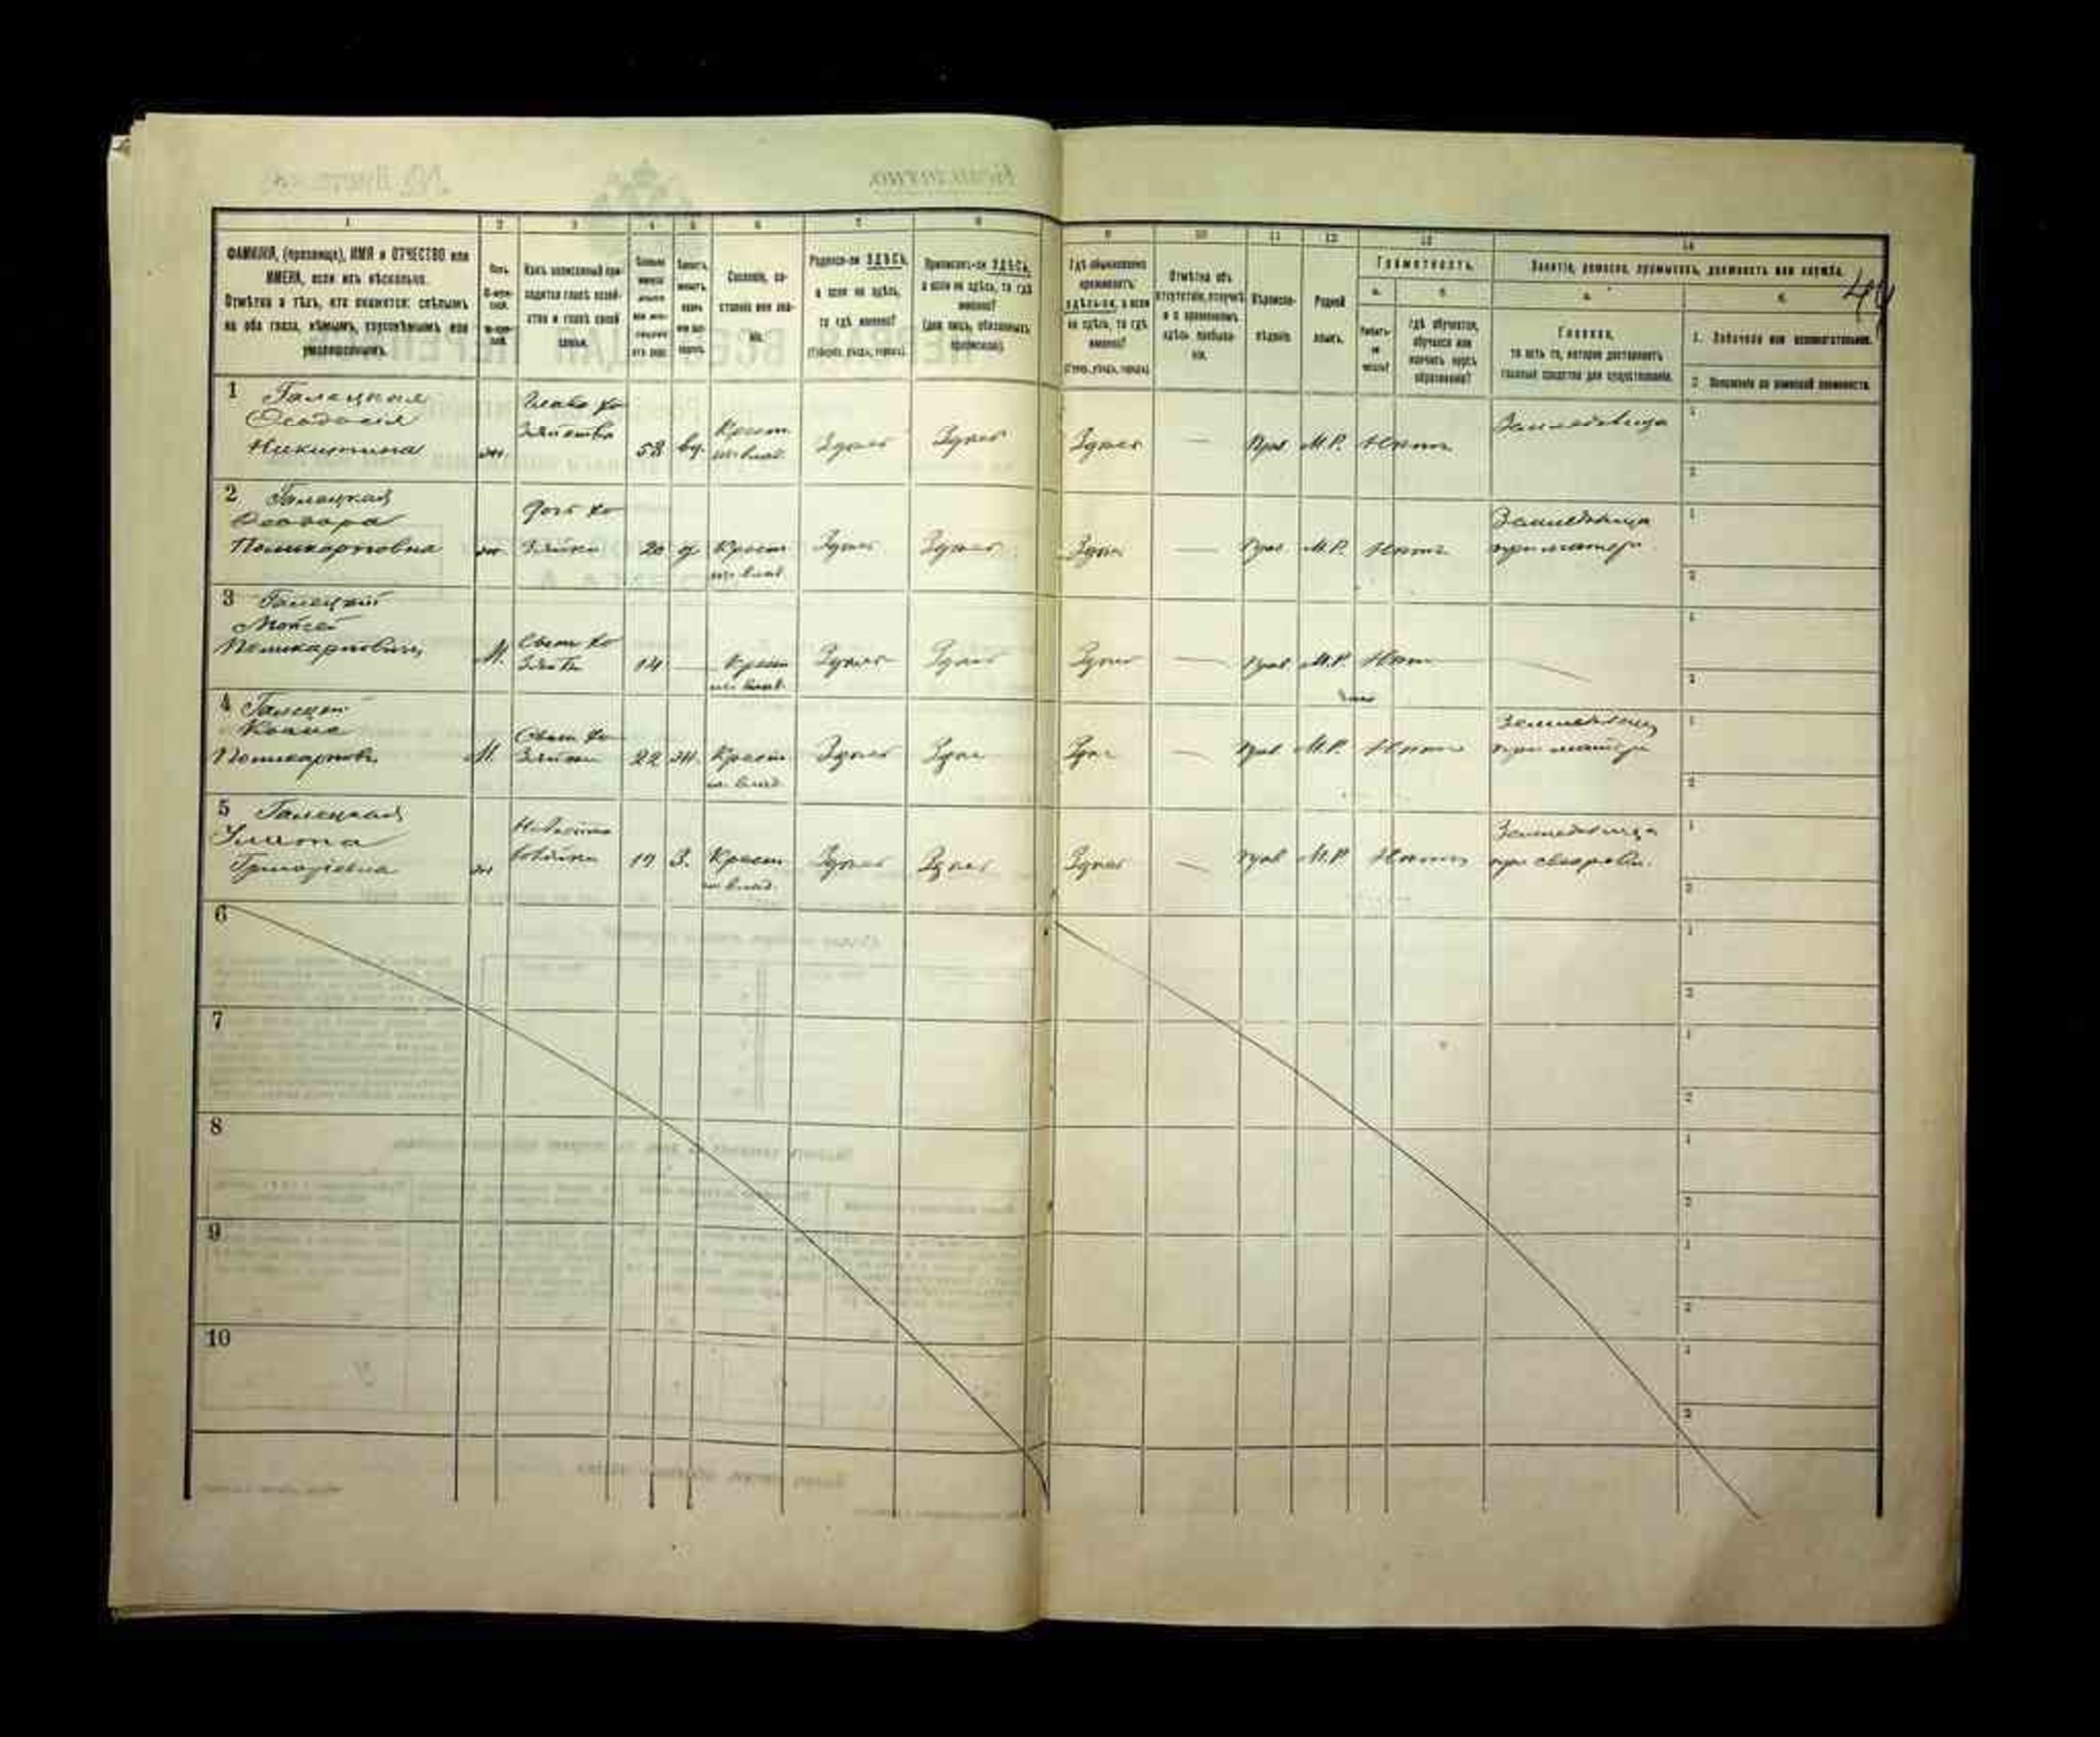 1
2
3
4
5
6
7
8
ФАМИЛІЯ, (прозвище), ИМЯ и ОТЧЕСТВО или
ИМЕНА, если ихъ нѣсколько.
Отмѣтка о тѣхъ, кто окажется: слѣпымъ
на оба глаза, нѣмымъ, глухонѣмымъ или
умалишеннымъ.
Полъ.
Какъ записанный при-
ходится главѣ хозяй-
ства и главѣ своей
семьи.
Сословіе, со-
стояніе или зва-
ніе.
Родился-ли ЗДѢСЬ,
а если не здѣсь,
то гдѣ именно?
(Губернія, уѣздъ, городъ).
Приписанъ-ли ЗДѢСЬ,
а если не здѣсь, то гдѣ
именно?
(для лицъ, обязанныхъ
припискою).
9
10
11
12
13
14
Гдѣ обыкновенно
проживаетъ:
здѣсь-ли, а если
не здѣсь, то гдѣ
именно?
(Губер., уѣздъ, городъ)
Отмѣтка объ
отсутствіи, отлучкѣ
и о временномъ
здѣсь пребыва-
ніи.
Вѣроиспо-
вѣданіе.
Родной
языкъ.
Грамотность.
а.
б.
Умѣетъ-
ли
читать?
гдѣ обучается,
обучался или
кончилъ курсъ
образованія?
Занятіе, ремесло, промыселъ, должность или служба.
44
а.
б.
Главное,
то есть то, которое доставляетъ
главныя средства для существованія.
1. Побочное или вспомогательное.
2. Положеніе по воинской повинности.
1 Галецкая
Ѳеодосія
Никитина
ж.
Глава хо
зяйства
58
вд.
Крест.
из влад.
Здѣсь
Здѣсь
Здѣсь
—
Прав
М.Р.
Нѣтъ
Земледѣлица
1
2
2 Галецкая
Ѳеодора
Поликарповна
ж.
Дочь хо
зяйки
20
д
Крест
из влад.
Здѣсь
Здѣсь
Здѣсь
—
Прав
М.Р.
Нѣтъ
Земледѣлица
при матери
1
2
3 Галецкий
Мойсей
Поликарпович
М.
Сынъ хо
зяйки
14
—
Крест
из влад.
Здѣсь
Здѣсь
Здѣсь
—
Прав
М.Р.
Нѣтъ
1
2
4 Галецкий
Поликарповъ
М.
Сынъ хо
зяйки
22
ж.
Крест
из влад.
Здѣсь
Здѣсь
Здѣсь
—
Прав
М.Р.
Нѣтъ
при матери
1
2
5 Галецкая
Улита
Григорьевна
ж
Невѣстка
19
З.
Крест
из влад.
Здѣсь
Здѣсь
Здѣсь
—
Прав
М.Р.
Нѣтъ
Земледѣлица
при свекрови.
1
2
6
1
2
7
1
2
8
1
2
9
1
2
10
1
2